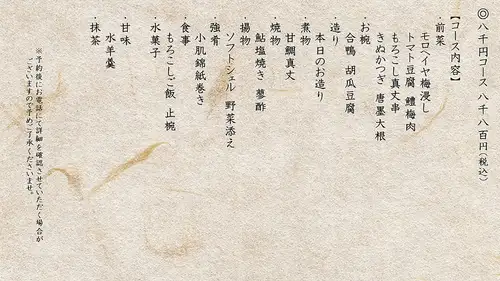 ◎八千円コース八千八百円(税込)
【コース内容】
・前菜
モロヘイヤ梅浸し
トマト豆腐 鱧梅肉
もろこし真丈串
きぬかつぎ 唐墨大根
・お椀
合鴨 胡瓜豆腐
・造り
本日のお造り
・煮物
甘鯛真丈
・焼物
鮎塩焼き 蓼酢
・揚物
ソフトシェル 野菜添え
・強肴
小肌錦紙巻き
・食事
もろこしご飯 止椀
・水菓子
・甘味
水羊羹
・抹茶
※予約後にお電話にて詳細を確認させていただく場合が
ございますので予めご了承くださいませ。